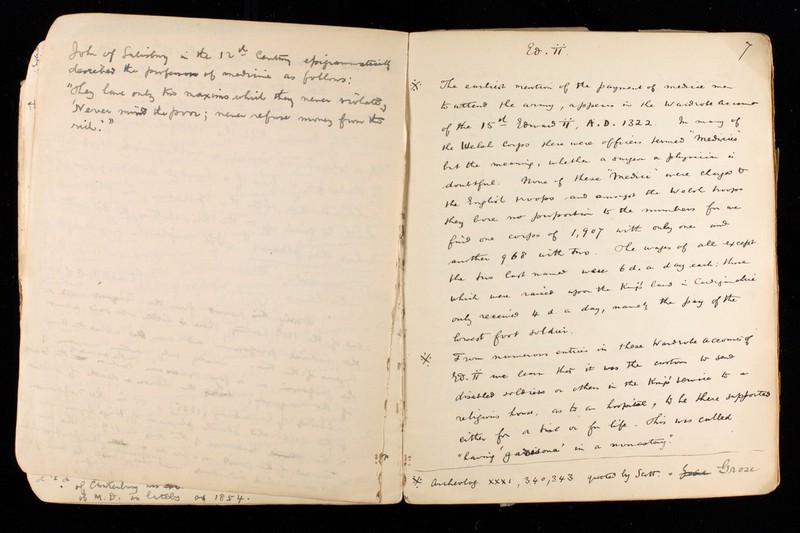 John of Salisbury in the 12th Century epigrammatically
described the professors of medicine as follows:
"They have only two maxims which they never violate,
'Never mind the poor; never refuse money from the
rich.'"
of Canterbury
M.D. as lately as 1854.
Ed. II
7
The earliest mention of the payment of medicine men
to attend the army, appears in the Wardrobe Accounts
of the 15th Edward II, A.D. 1322. In many of
the Welsh Corps there were officers termed "Medicine"
but the meaning, whether a surgeon or physician is
doubtful. None of these "Medici" were charged to
the English troops and amongst the Welsh troops
they bore no proportion to the numbers for we
find one corps of 1,907 with only one and
another 968 with two. The wages of all except
the two last named were 6d. a day each; those
which were raised upon the King's land in Cardiganshire
only received 4d. a day, namely the pay of the
lowest foot soldier.
From numerous entries in these Wardrobe accounts of
Ed. II we learn that it was the custom to send
disabled soldiers or others in the King's service to a
religious house, as to an hospital, to be there supported
either for a trial or for life. This was called
"having 'garisone' in a monastery."
Archeolog. XXXI, 340,343 quoted by Scott. Grose